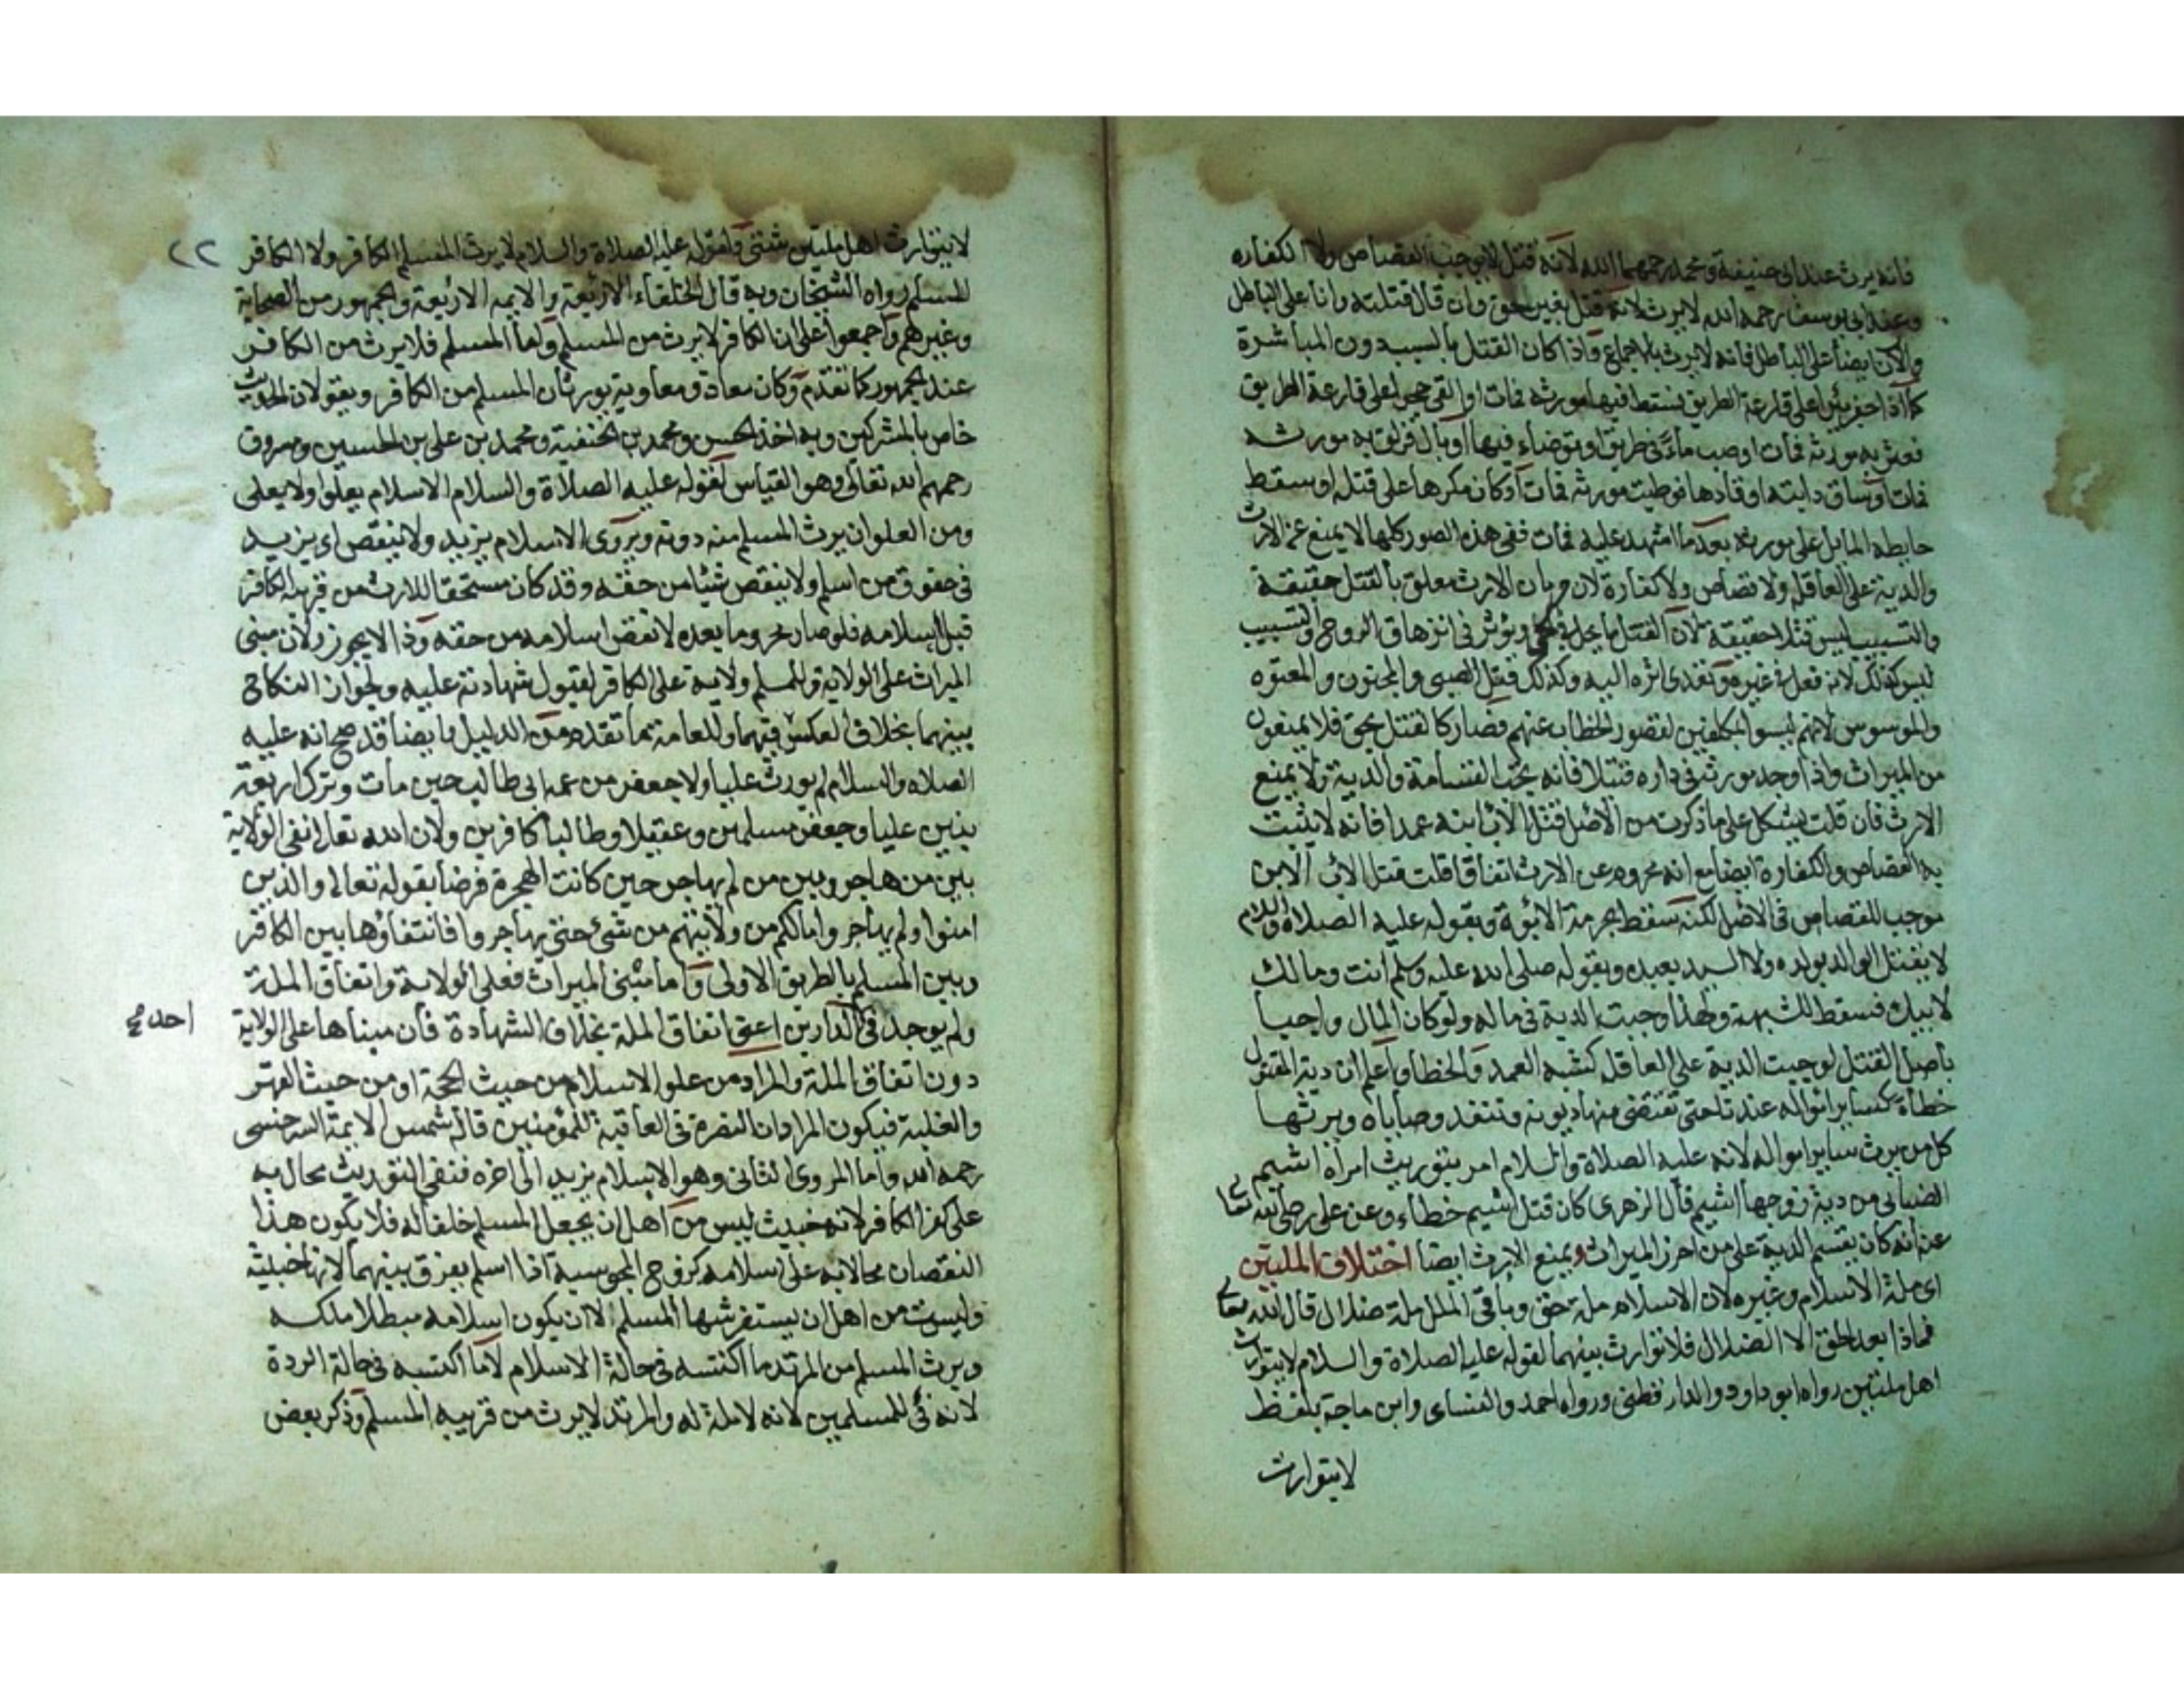 فانه يرث عند ابى حنيفة ومحمد رحمهما الله لانه قتل لا يوجب القصاص ولا الكفاره
وعند ابى يوسف رحمه الله لا يرث لانه قتل بغير حق وان قال قتلته وانا على الباطل
والآن ايضا على الباطل فانه لا يرث بالاجماع واذا كان القتل بالسبب دون المباشرة
كما اذا حفر بئرا على قارعة الطريق فسقط فيها مورثه فمات او القى حجرا على قارعة الطريق
فعثر به مورثه فمات او صب ماء فى طريق او توضاء فيها او بال فزلق به مورثه
فمات او ساق دابته او قادها فوطيت مورثه فمات او كان مكرها على قتله او سقط
حايطه المايل على مورثه بعد ما اشهد عليه فمات ففى هذه الصور كلها لا يمنع عن الارث
والدية على العاقلة ولا قصاص ولا كفارة لان حرمان الارث معلق بالقتل حقيقة
والتسبيب ليس قتلا حقيقة لان القتل ما يحل فى حى ويؤثر فى انزهاق الروح والتسبيب
ليس كذلك لانه فعل فى غيره وتعدى اثره اليه وكذلك قتل الصبى والمجنون والمعتوه
والموسوس لانهم ليسوا بمكلفين لقصور الخطاب عنهم فصار كالقتل بحق فلا يمنعون
من الميراث واذا وجد مورثه فى داره قتيلا فانه يجب القسامة والدية ولا يمنع
الارث فان قلت يشكل على ما ذكرت من الاصل قتل الاب ابنه عمدا فانه لا يثبت
به القصاص والكفارة ايضا مع انه محروم عن الارث اتفاقا قلت قتل الاب الابن
موجب للقصاص فى الاصل لكنه سقط بحرمة الابوة وبقوله عليه الصلاة والسلام
لا يقتل الوالد بولده ولا السيد بعبده وبقوله صلى الله عليه وسلم انت ومالك
لابيك فسقط للشبهة ولهذا وجبت الدية فى ماله ولو كان المال واجبا
باصل القتل لوجبت الدية على العاقلة كشبه العمد والخطأ واعلم ان دية المقتول
خطأ كسائر امواله عندنا حتى تقتضى منها ديونه وتنفذ وصاياه ويرثها
كل من يرث ساير امواله لانه عليه الصلاة والسلام امر بتوريث امراة اشيم
الضبابى من دية زوجها اشيم قال الزهرى كان قتل اشيم خطاء وعن على رضى الله تعالى
عنه انه كان يقسم الدية على من احرز الميراث ويمنع الارث ايضا اختلاف الملتين
اى ملة الاسلام وغيره لان الاسلام ملة حق وباقى الملل ملة ضلال قال الله تعالى
فماذا بعد الحق الا الضلال فلا توارث بينهما لقوله عليه الصلاة والسلام لا يتوارث
اهل ملتين رواه ابو داود والدار قطنى ورواه احمد والنساى وابن ماجة بلفظ
لا يتوارث
٢٢
لا يتوارث اهل ملتين شتى ولقوله عليه الصلاة والسلام لا يرث المسلم الكافر ولا الكافر
المسلم رواه الشيخان وبه قال الخلفاء الاربعة والايمه الاربعة والجمهور من الصحابة
وغيرهم واجمعوا على ان الكافر لا يرث من المسلم واما المسلم فلا يرث من الكافر
عند الجمهور كما تقدم وكان معاذ ومعاوية يورثان المسلم من الكافر ويقولان الحديث
خاص بالمشركين وبه اخذ الحسن ومحمد بن الحنفية ومحمد بن على بن الحسين ومسروق
رحمهم الله تعالى وهو القياس لقوله عليه الصلاة والسلام الاسلام يعلوا ولا يعلى
ومن العلو ان يرث المسلم منه دونه ويروى الاسلام يزيد ولا ينقص اى يزيد
فى حقوق من اسلم ولا ينقص شيئا من حقه وقد كان مستحقا للارث من قريبه الكافر
قبل اسلامه فلو صار محروما بعده لانقص اسلامه من حقه وذا لا يجوز ولان مبنى
الميراث على الولاية وللمسلم ولاية على الكافر لقبول شهادته عليه ولجواز النكاح
بينهما بخلاف العكس فيهما وللعامة ما تقدم من الدليل وايضا قد صح انه عليه
الصلاه والسلام لم يورث عليا ولا جعفر من عمه ابى طالب حين مات وترك اربعة
بنين عليا وجعفر مسلمين وعقيلا وطالبا كافرين ولان الله تعالى نفى الولاية
بين من هاجر وبين من لم يهاجر حين كانت الهجرة فرضا بقوله تعالى والذين
امنوا ولم يهاجروا مالكم من ولايتهم من شىء حتى يهاجروا فانتفاؤها بين الكافر
وبين المسلم بالطريق الاولى واما مبنى الميراث فعلى الولاية واتفاق الملة
ولم يوجد فى الدارين اعنى اتفاق الملة بخلاف الشهادة فان مبناها على الولاية
احد صح
دون اتفاق الملة والمراد من علو الاسلام من حيث الحجة او من حيث القهر
والغلبة فيكون المراد ان النصرة فى العاقبة للمؤمنين قاله شمس الايمة السرخسى
رحمه الله واما المروى الثانى وهو الاسلام يزيد الى اخره فنفى التوريث محال به
على كفر الكافر لانه خبيث ليس من اهل ان يجعل المسلم خلفا له فلا يكون هذا
النقصان محالا به على اسلامه كزوج المجوسية اذا اسلم يفرق بينهما لانها خبيثة
وليست من اهل ان يستفرشها المسلم لا ان يكون اسلامه مبطلا ملكه
ويرث المسلم من المرتد ما اكتسبه فى حالة الاسلام لا ما اكتسبه فى حالة الردة
لانه فئ للمسلمين لانه لا ملة له والمرتد لا يرث من قريبه المسلم وذكر بعض